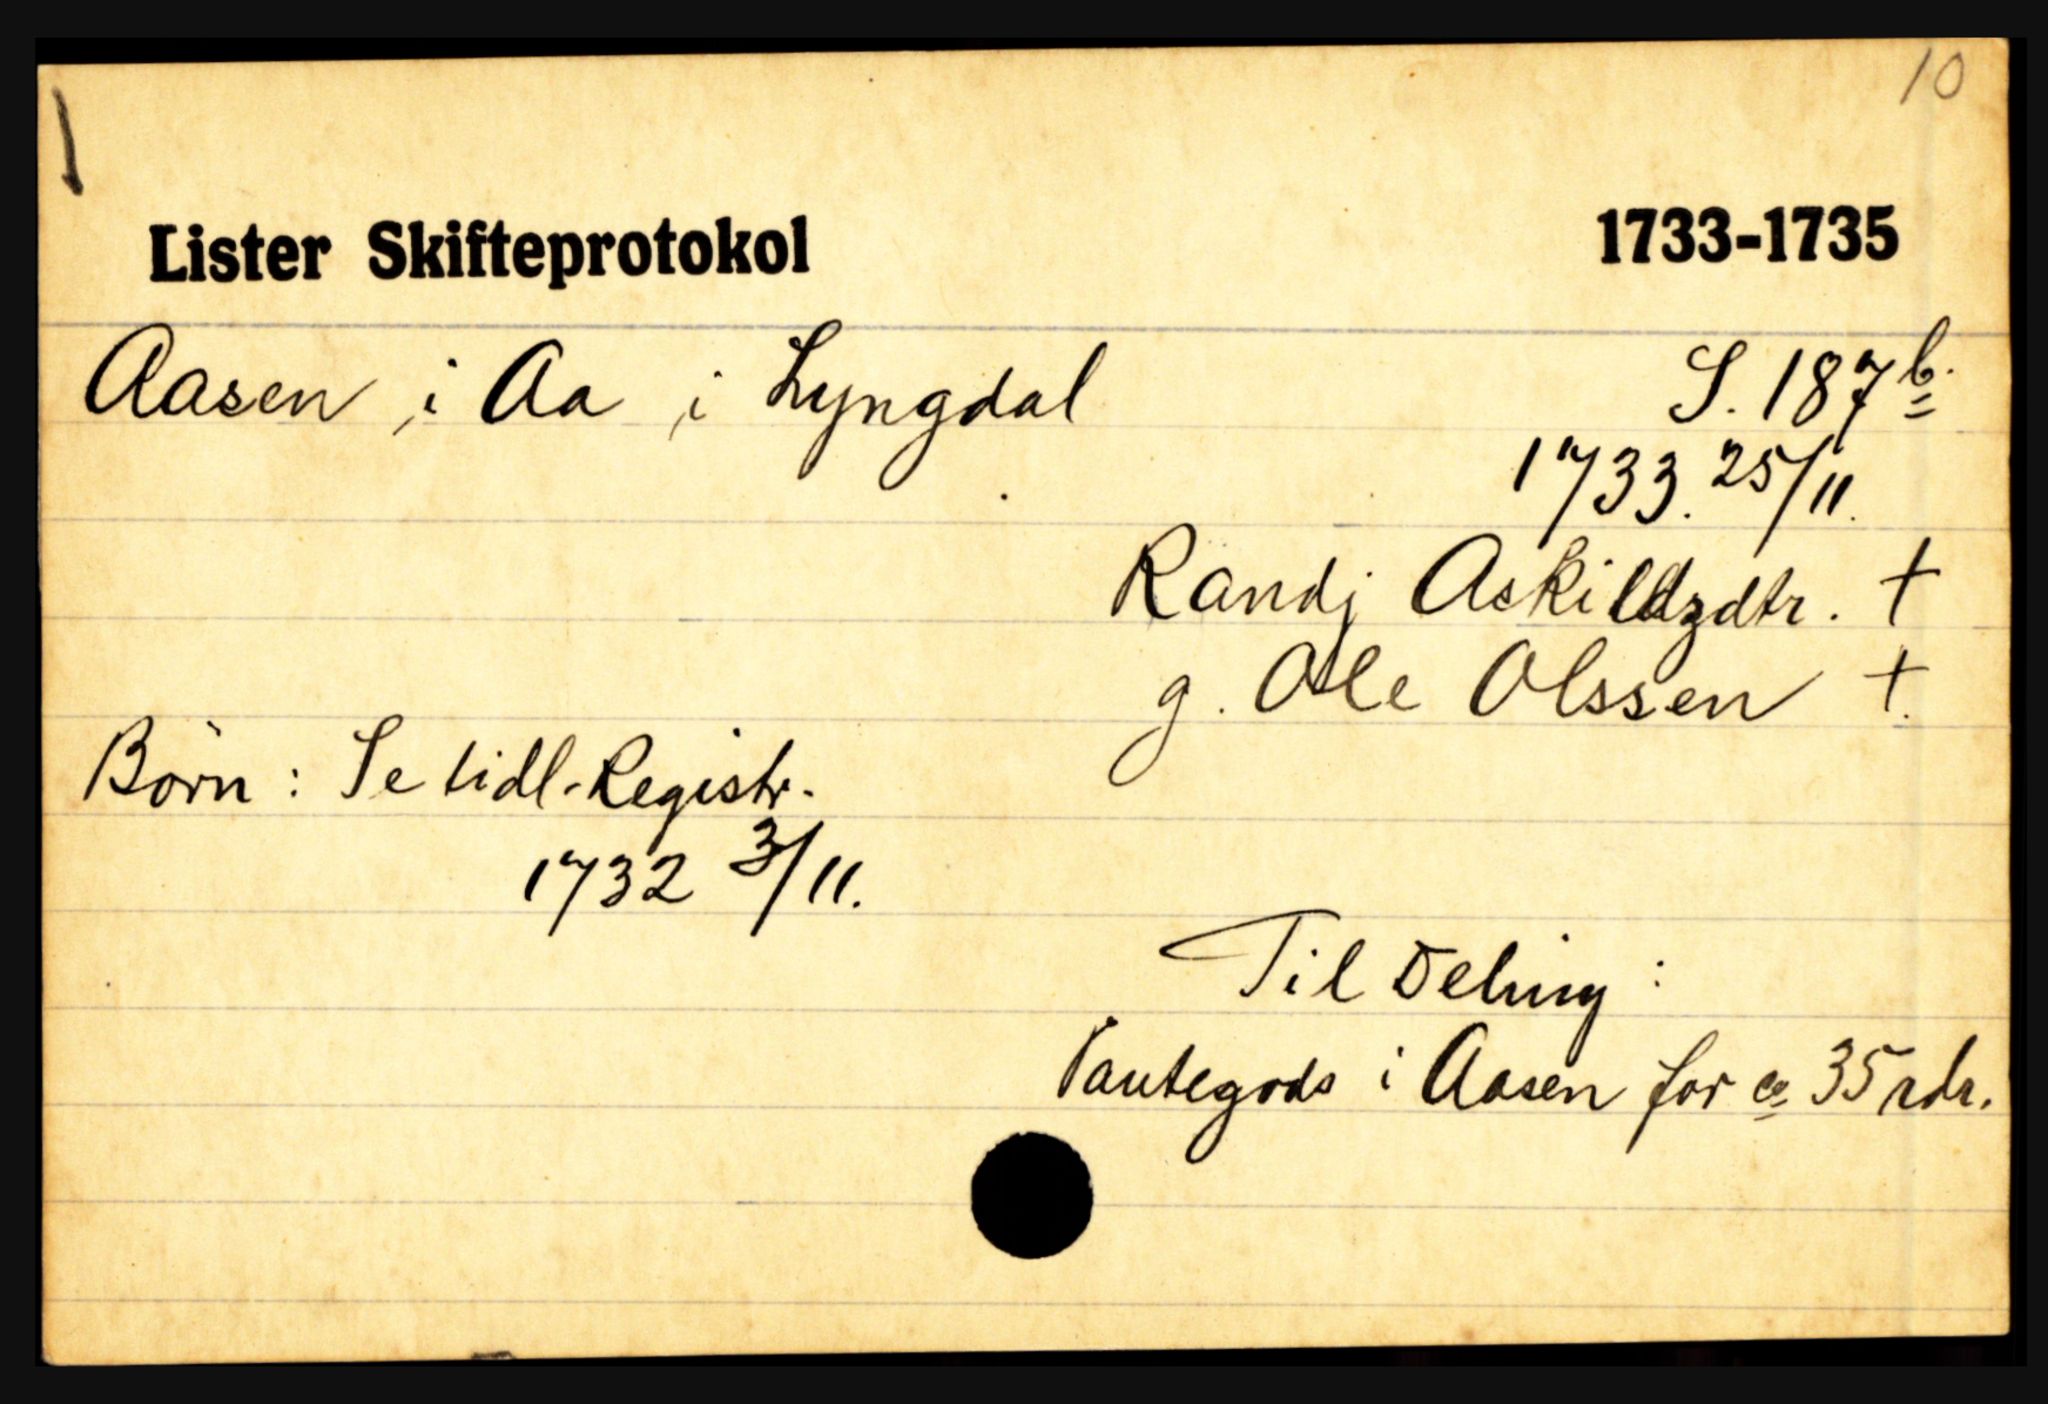 10
Lister Skifteprotokol 1733-1735
Aasen i Aa i Lyngdal S. 187 b.
1733. 25/11.
Randj Askildzdtr. †
g. Ole Olssen †.
Börn: Se tidl. Registr.
1732 3/11.
Til Deling:
Pantegods i Aasen for ca 35 rdr.